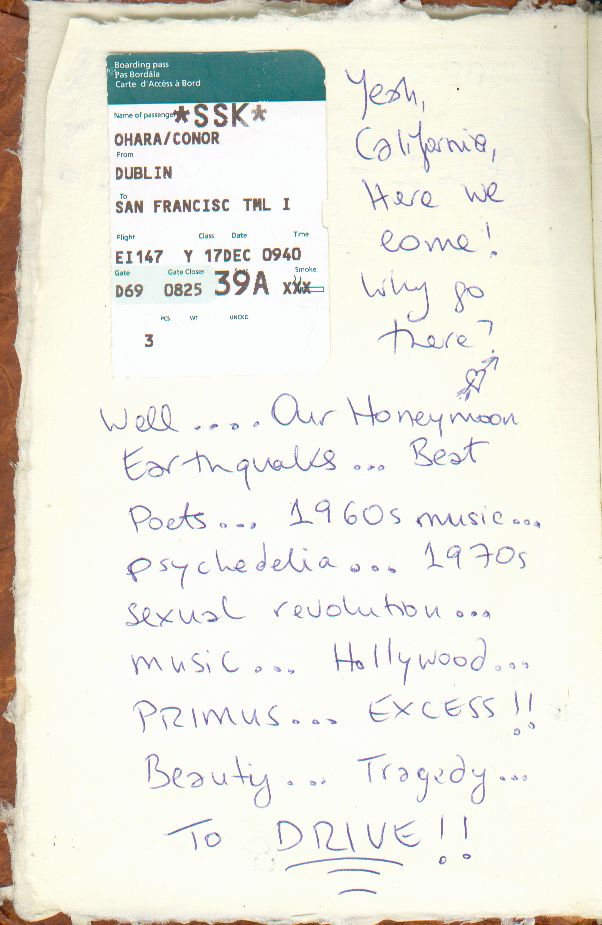 Boarding pass
Pas Bordála
Carte d'Accèss à Bord
Name of passenger *SSK*
OHARA/CONOR
From
DUBLIN
To
SAN FRANCISC TML I
Flight Class Date Time
EI147 Y 17DEC 0940
Gate Gate Closes Seat Smoke
D69 0825 39A XXX
PCS WT UNCKD
3
Yeah,
California,
Here we
come!
Why go
there?
Well .... Our Honeymoon
Earthquakes ... Beat
Poets ... 1960s music ...
psychedelia ... 1970s
sexual revolution ...
music ... Hollywood ...
PRIMUS ... EXCESS !!
Beautiy ... Tragedy ...
To DRIVE !!